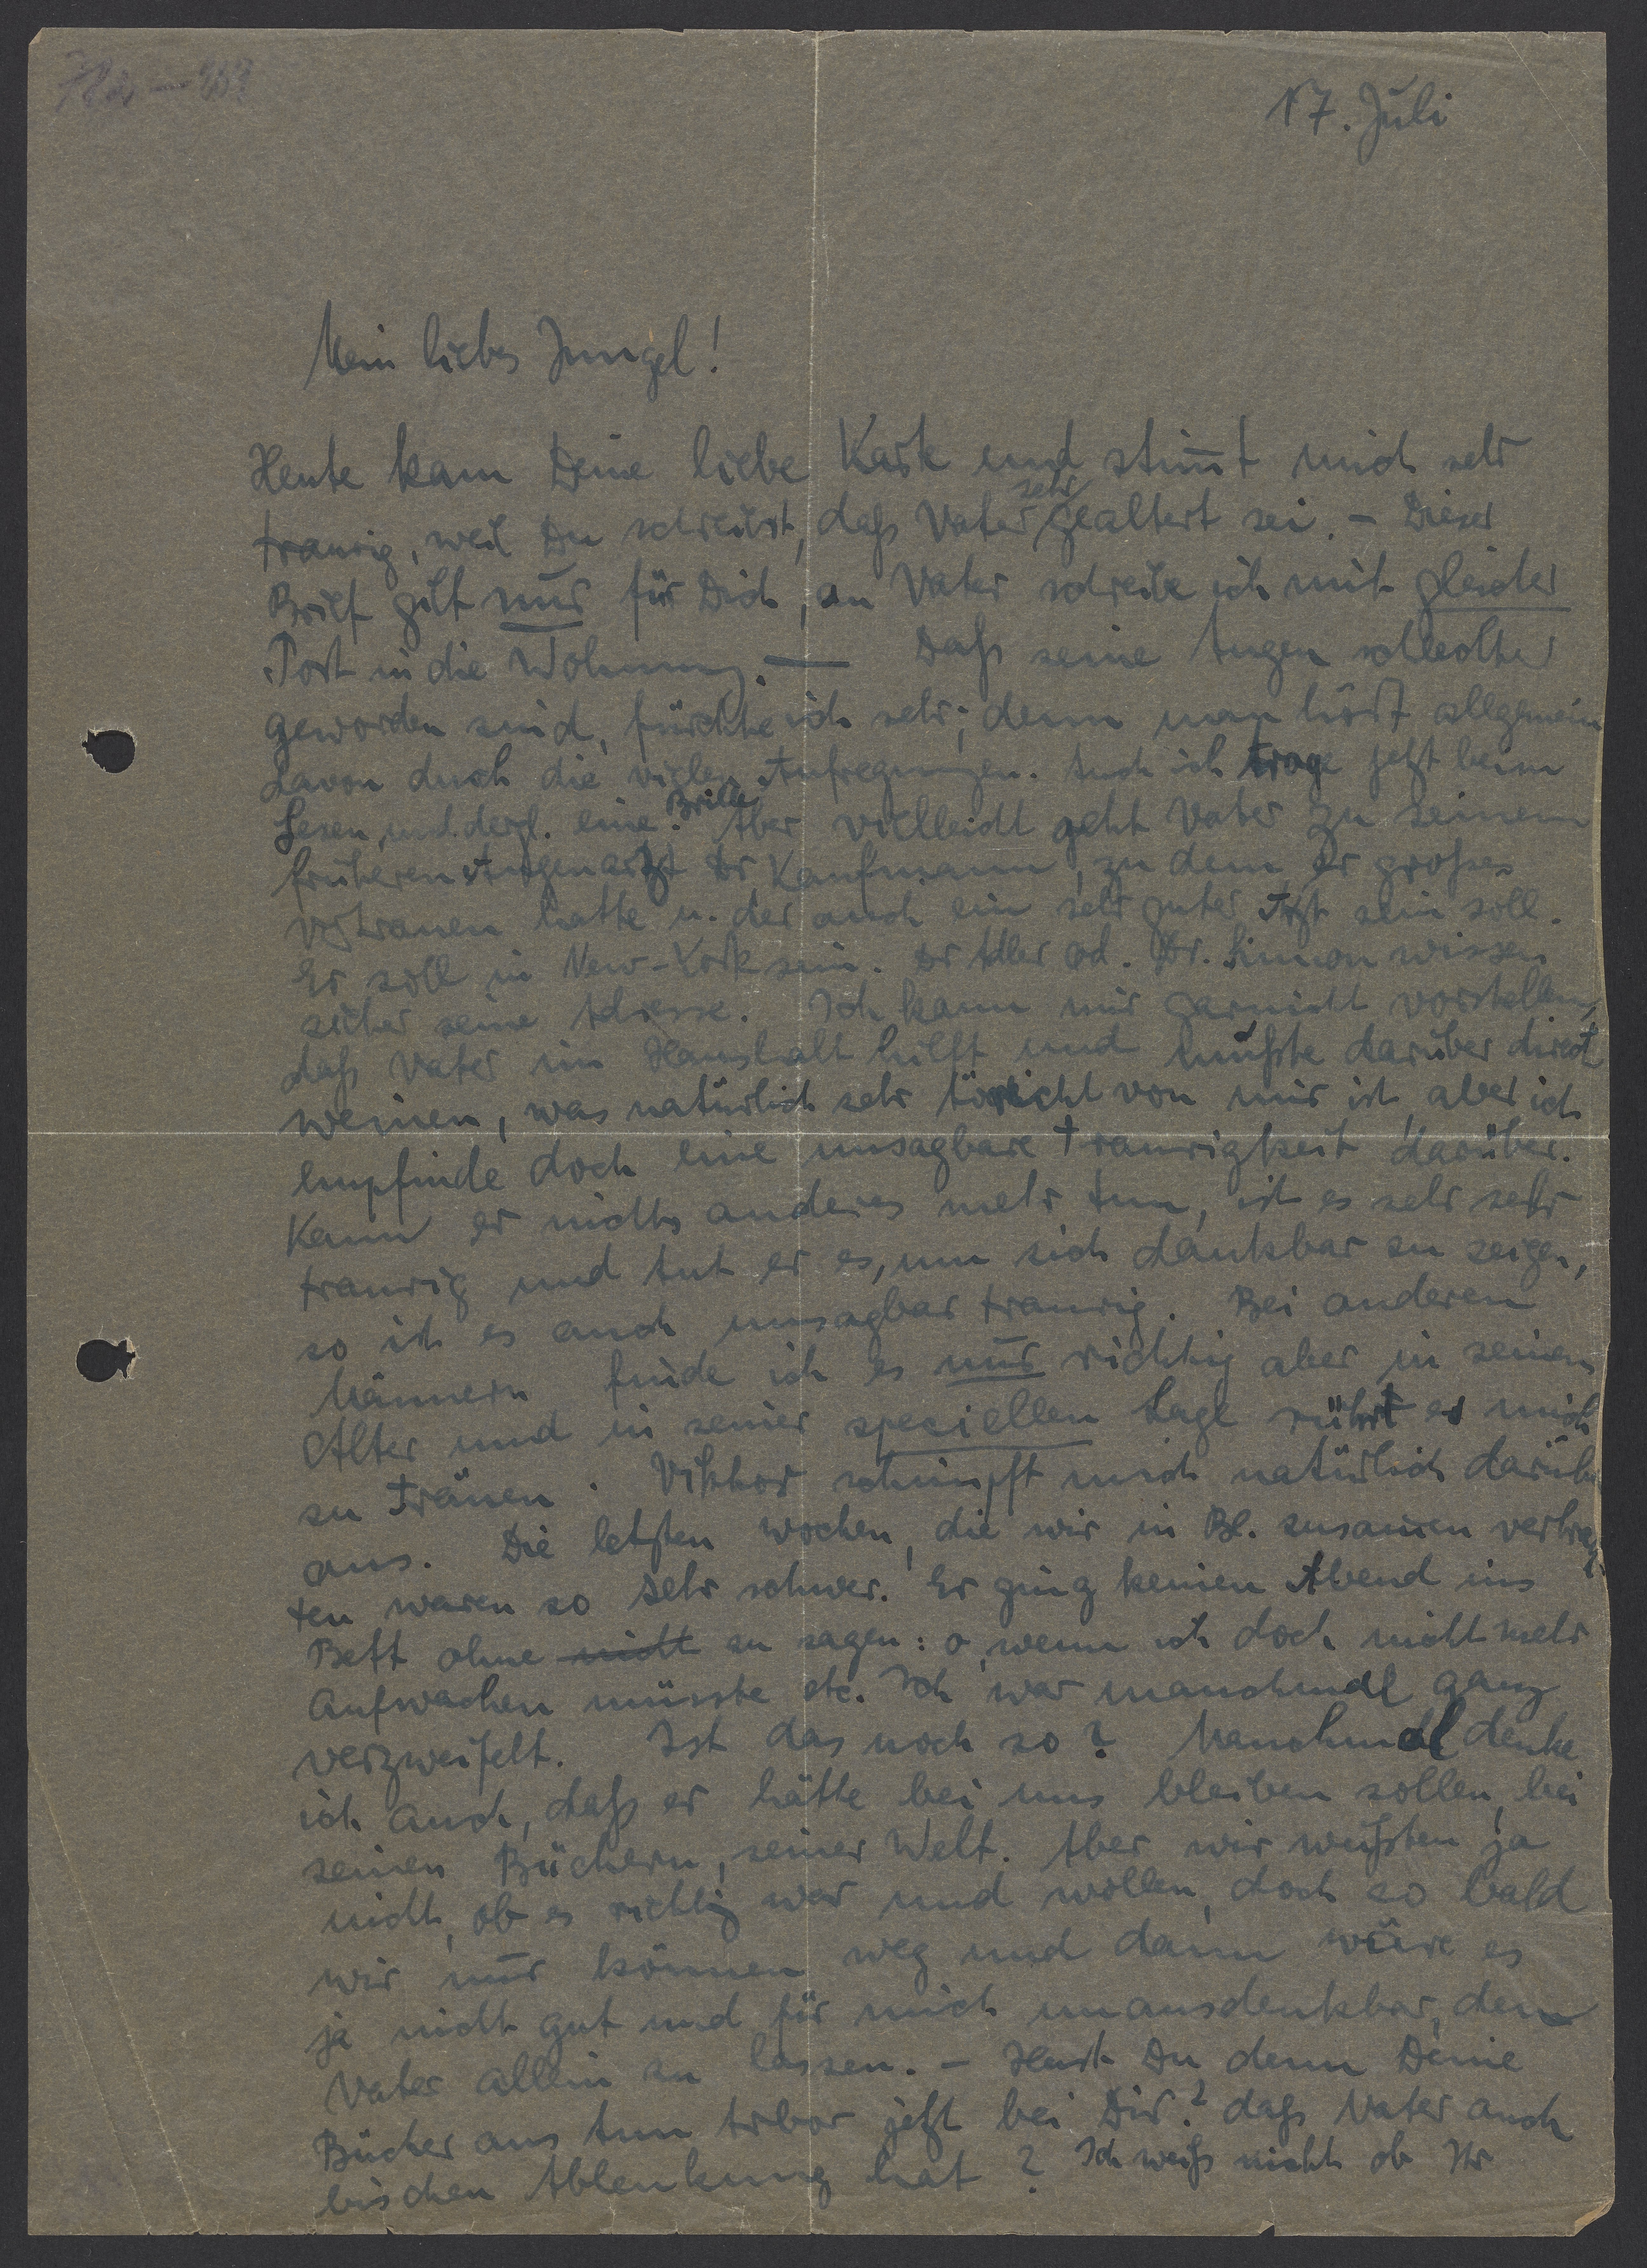 17. Juli
Mein liebes Jungel!
Heute kam Deine liebe Karte und stim̄t mich sehr
traurig, weil Du schreibst, daß Vater sehr gealtert sei. – Dieser
Brief gilt nur für Dich, an Vater schreibe ich mit gleicher
Post in die Wohnung. — Daß seine Augen schlechter
geworden sind, fürchte ich sehr; denn man hört allgemein
davon durch die vielen Aufregungen. Auch ich trage jetzt beim
Lesen und dergl. eine Brille. Aber vielleicht geht Vater zu seinem
früheren Augenarzt Dr Kaufmann, zu dem er großes
Vertrauen hatte u. der auch ein sehr guter Arzt sein soll.
Er soll in New-York sein. Dr Adler od. Dr. Simon wissen
sicher seine Adresse. Ich kann mir garnicht vorstellen,
daß Vater im Haushalt hilft und mußte darüber direct
weinen, was natürlich sehr töricht von mir ist, aber ich
empfinde doch eine unsagbare Traurigkeit darüber.
Kann er nichts anderes mehr tun, ist es sehr sehr
traurig und tut er es, um sich dankbar zu zeigen,
so ist es auch unsagbar traurig. Bei anderen
Männern finde ich es nur richtig aber in seinem
Alter und in seiner speciellen Lage rührt es mich
zu Tränen. Viktor schimpft mich natürlich darüber
aus. Die letzten Wochen, die wir in Bl. zusam̄en verbrach-
ten waren so sehr schwer. Er ging keinen Abend ins
Bett ohne nicht zu sagen: o, wenn ich doch nicht mehr
aufwachen müsste etc. Ich war manchmal ganz
verzweifelt. Ist das noch so? Manchmal denke
ich auch, daß er hätte bei uns bleiben sollen, bei
seinen Büchern, seiner Welt. Aber wir wußten ja
nicht, ob es richtig war und wollen doch so bald
wir nur können weg und dann wäre es
ja nicht gut und für mich unausdenkbar, den
Vater allein zu lassen. – Hast Du denn Deine
Bücher aus Ann Arbor jetzt bei Dir? daß Vater auch
bischen Ablenkung hat? Ich weiß nicht ob Ihr